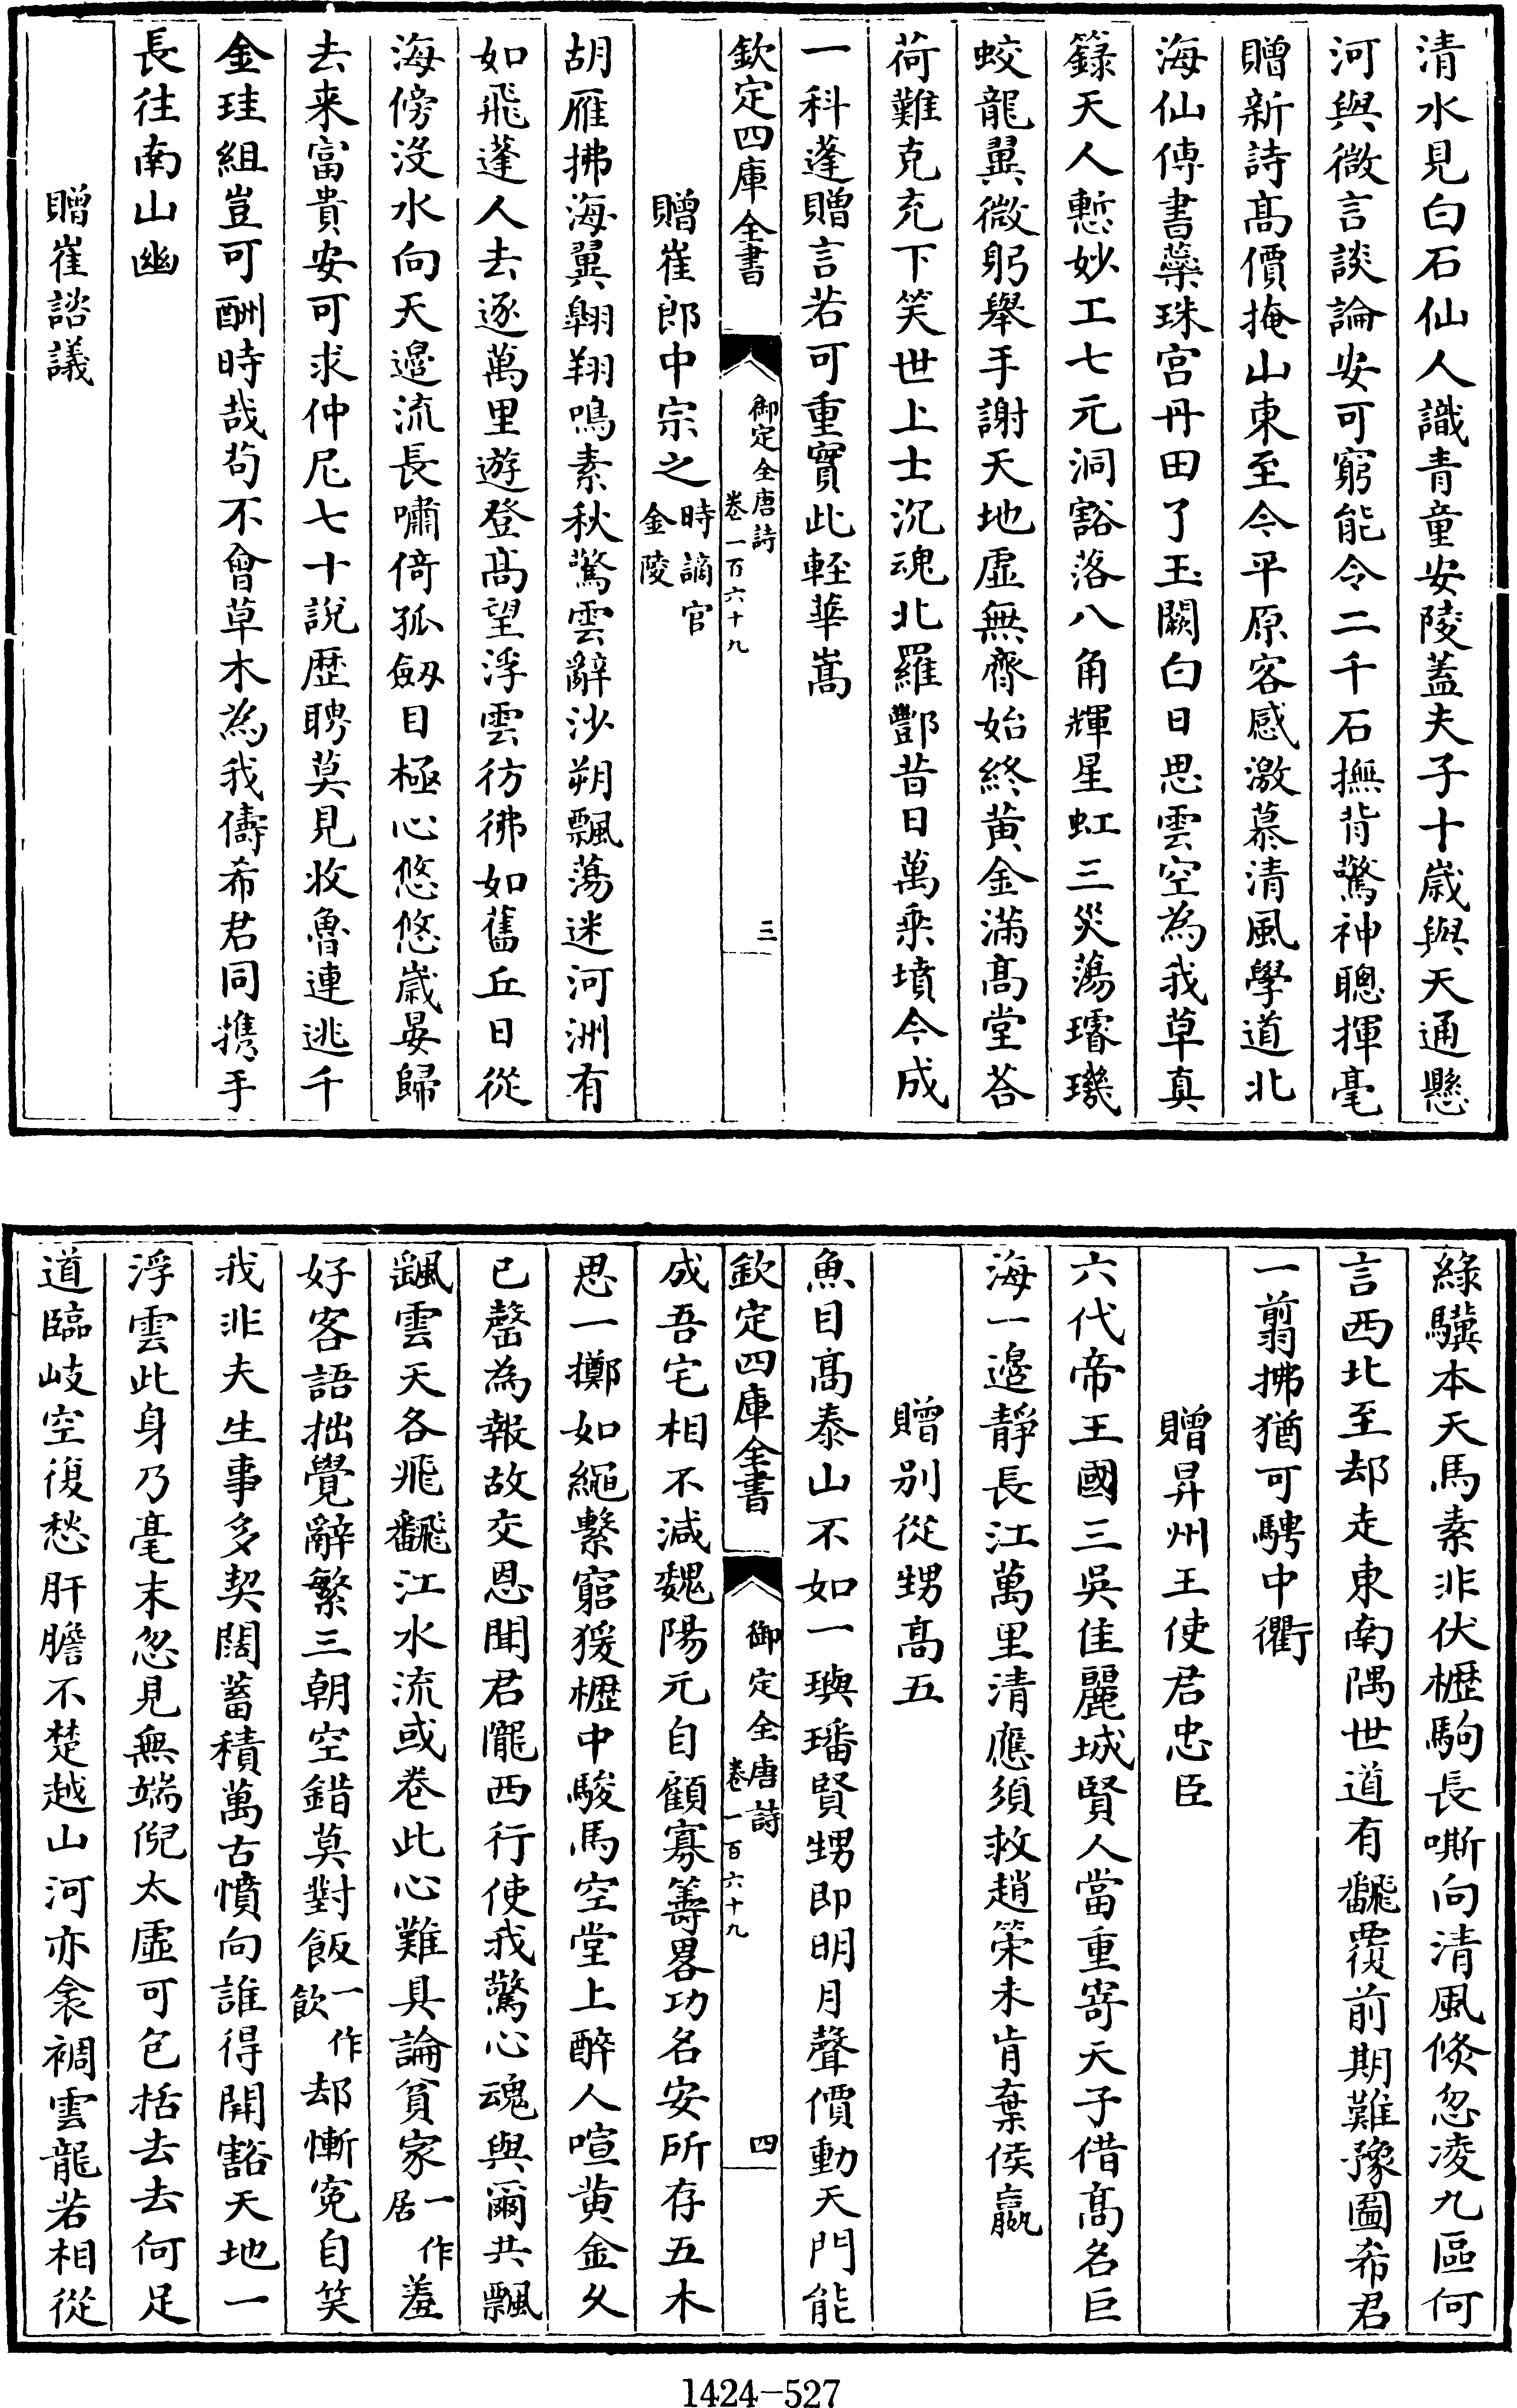 清水見白石仙人識青童安陵蓋夫子十歲與天通懸
河與微言談論安可窮能令二千石撫背驚神聰揮毫
贈新詩髙價掩山東至今平原客感激慕清風學道北
海仙傳書蘂珠宫丹田了玉闕白日思雲空為我草真
籙天人慙妙工七元洞豁落八角輝星虹三災蕩璿璣
蛟龍翼微躬舉手謝天地虛無齊始終黄金滿髙堂荅
荷難克充下笑世上士沉魂北羅酆昔日萬乘墳今成
一科蓬贈言若可重實此輕華嵩
欽定四庫全書
御定全唐詩
卷一百六十九
三
贈崔郎中宗之時謫官
金陵
胡雁拂海翼翺翔鳴素秋驚雲辭沙朔飄蕩迷河洲有
如飛蓬人去逐萬里遊登髙望浮雲彷彿如舊丘日從
海傍沒水向天邉流長嘯倚孤劔目極心悠悠歲晏歸
去来富貴安可求仲尼七十說歴聘莫見收魯連逃千
金珪組豈可酬時哉茍不會草木為我儔希君同携手
長往南山幽
贈崔諮議
綠驥本天馬素非伏櫪駒長嘶向清風倐忽凌九區何
言西北至却走東南隅世道有飜覆前期難豫圖希君
一翦拂猶可騁中衢
贈昇州王使君忠臣
六代帝王國三吳佳麗城賢人當重寄天子借髙名巨
海一邉靜長江萬里清應須救趙䇿未肯棄侯嬴
贈别從甥髙五
魚目髙泰山不如一璵璠賢甥即明月聲價動天門能
欽定四庫全書
御定全唐詩
卷一百六十九
四
成吾宅相不減魏陽元自顧寡籌畧功名安所存五木
思一擲如繩繫窮猨櫪中駿馬空堂上醉人喧黄金久
已罄為報故交恩聞君隴西行使我驚心魂與爾共飄
颻雲天各飛飜江水流或卷此心難具論貧家一作
居羞
好客語拙覺辭繁三朝空錯莫對飯一作
飲却慚寃自笑
我非夫生事多契闊蓄積萬古憤向誰得開豁天地一
浮雲此身乃毫末忽見無端倪太虛可包括去去何足
道臨岐空復愁肝膽不楚越山河亦衾裯雲龍若相從
1424-527